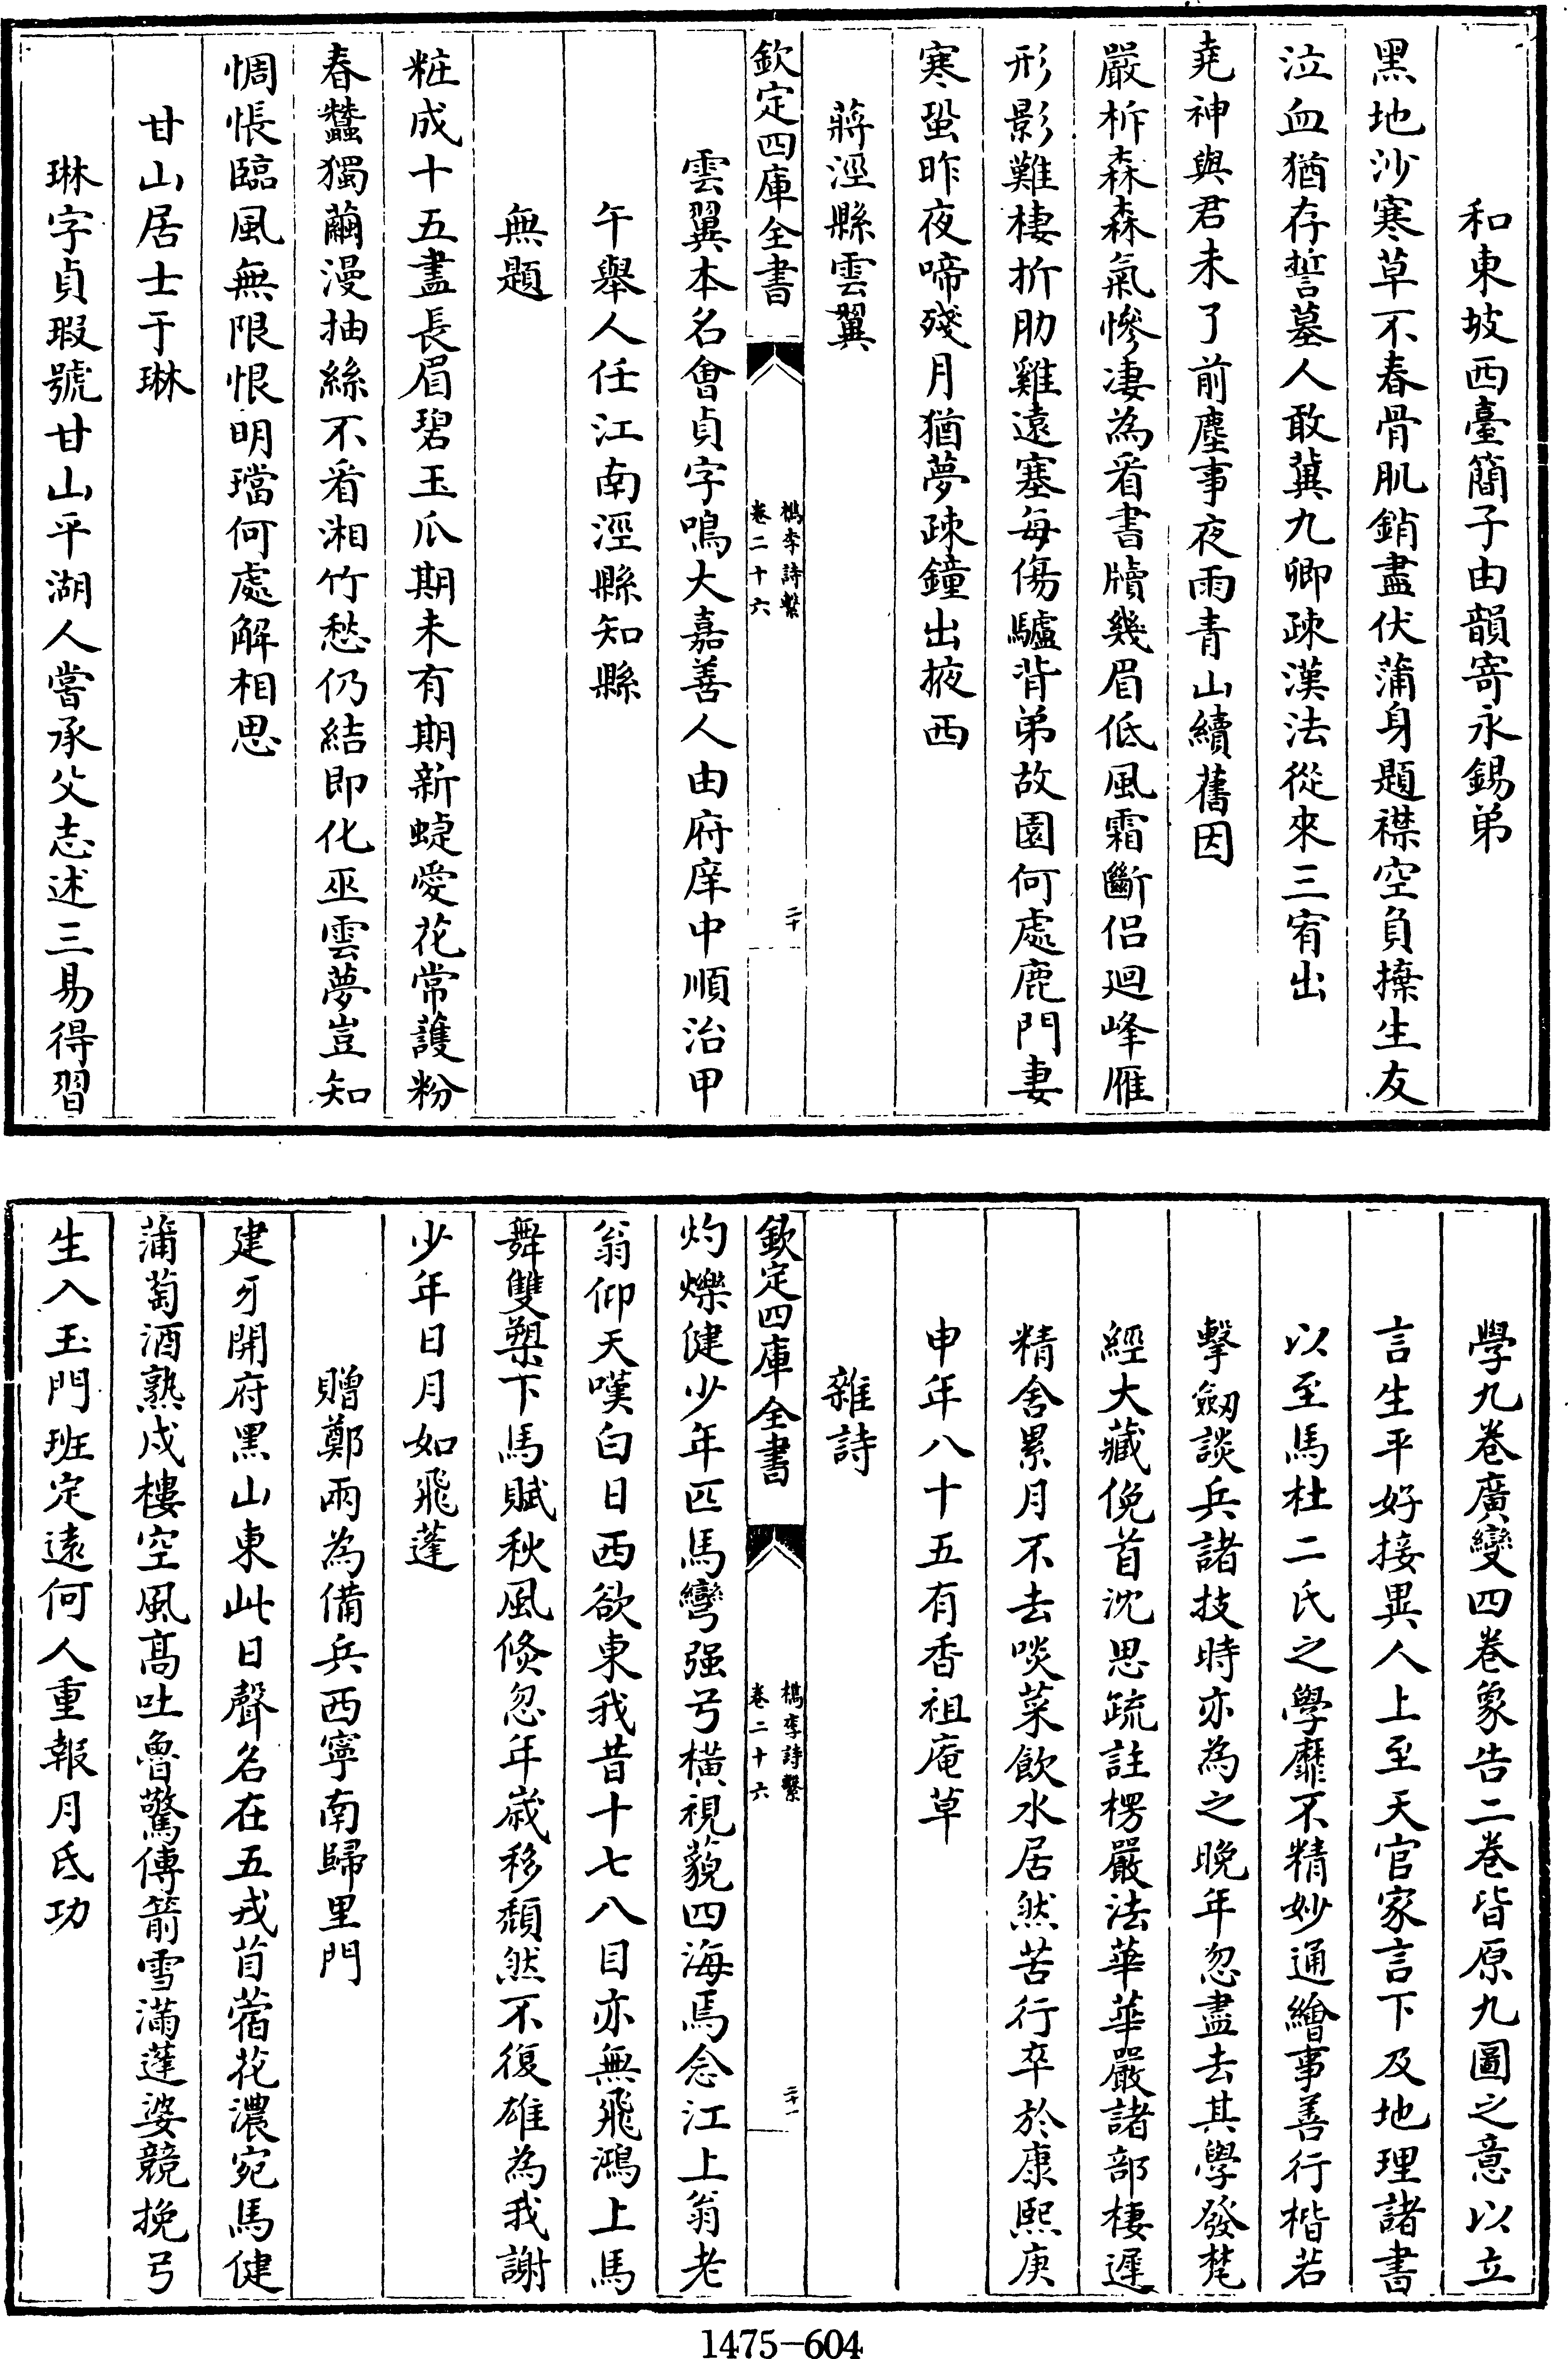 和東坡西臺簡子由韻寄永錫弟
黑地沙寒草不春骨肌銷盡伏蒲身題襟空負搡生友
泣血猶存誓墓人敢冀九卿疎漢法從來三宥出
堯神與君未了前塵事夜雨青山續舊因
嚴柝森森氣慘凄為看書牘幾眉低風霜斷侣迴峰雁
形影難棲折肋雞遠塞每傷驢背弟故園何處鹿門妻
寒蛩昨夜啼殘月猶夢疎鐘出掖西
蔣涇縣雲翼
欽定四庫全書
檇李詩繫
卷二十六
二十
雲翼本名會貞字鳴大嘉善人由府庠中順治甲
午舉人任江南涇縣知縣
無題
粧成十五畫長眉碧玉瓜期未有期新蜨愛花常護粉
春蠶獨繭漫抽絲不看湘竹愁仍結即化巫雲夢豈知
惆悵臨風無限恨明璫何處解相思
甘山居士于琳
琳字貞瑕號甘山平湖人嘗承父志述三易得習
學九卷廣變四卷象告二卷皆原九圖之意以立
言生平好接異人上至天官家言下及地理諸書
以至馬杜二氏之學靡不精妙通繪事善行楷若
擊劒談兵諸技時亦為之晚年忽盡去其學發梵
經大藏俛首沈思疏註楞嚴法華華嚴諸部棲遲
精舍累月不去啖菜飲水居然苦行卒於康熙庚
申年八十五有香祖庵草
雜詩
欽定四庫全書
檇李詩繫
卷二十六
二十一
灼爍健少年匹馬彎强弓横視藐四海馬念江上翁老
翁仰天嘆白日西欲東我昔十七八目亦無飛鴻上馬
舞雙槊下馬賦秋風倐忽年嵗移頹然不復雄為我謝
少年日月如飛蓬
贈鄭兩為備兵西寧南歸里門
建牙開府黑山東此日聲名在五戎苜蓿花濃宛馬健
蒲萄酒熟戍樓空風髙吐魯驚傳箭雪滿蓬婆競挽弓
生入玉門班定遠何人重報月氐功
1475-604